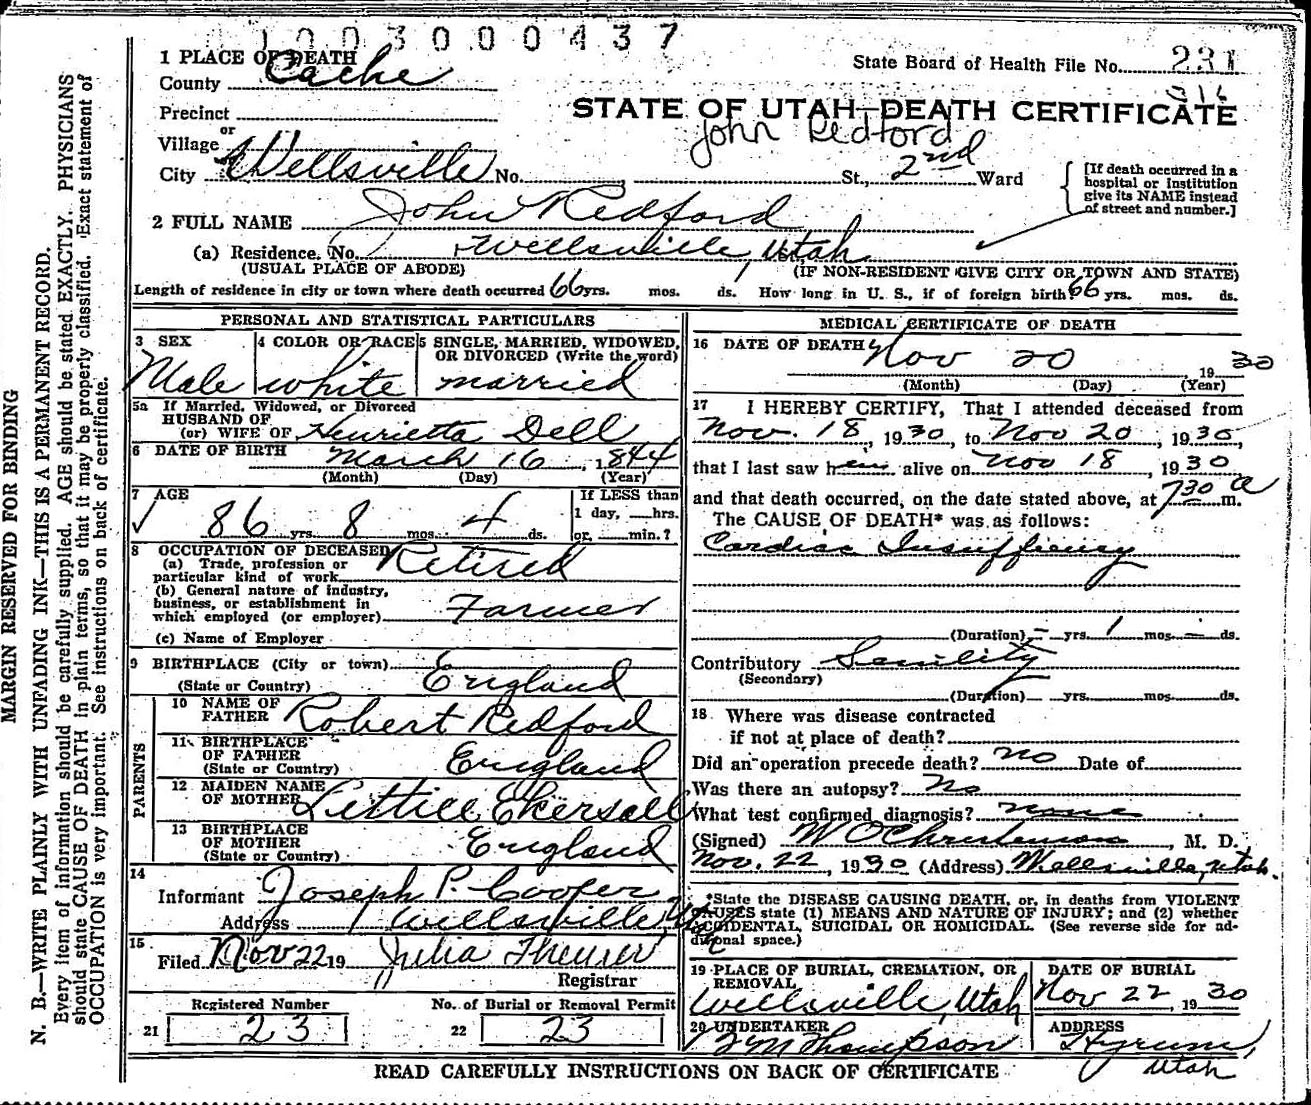 1003000437
1 PLACE OF DEATH
County Cache
State Board of Health File No. 231
316
Precinct
STATE OF UTAH—DEATH CERTIFICATE
John Redford
Village
or
City Wellsville No. St., 2nd Ward
[If death occurred in a
hospital or Institution
give its NAME instead
of street and number.]
2 FULL NAME John Redford
(a) Residence. No. Wellsville, Utah
(USUAL PLACE OF ABODE) (IF NON-RESIDENT GIVE CITY OR TOWN AND STATE)
Length of residence in city or town where death occurred 66 yrs. mos. ds. How long in U. S., if of foreign birth? 66 yrs. mos. ds.
PERSONAL AND STATISTICAL PARTICULARS
3 SEX Male
4 COLOR OR RACE white
5 SINGLE, MARRIED, WIDOWED,
OR DIVORCED (Write the word)
married
5a If Married, Widowed, or Divorced
HUSBAND OF
(or) WIFE OF Henrietta Dell
6 DATE OF BIRTH March 16, 1844
(Month) (Day) (Year)
7 AGE
86 yrs. 8 mos. 4 ds.
If LESS than
1 day, hrs.
or, min.?
8 OCCUPATION OF DECEASED
(a) Trade, profession or
particular kind of work Retired
(b) General nature of Industry,
business, or establishment in
which employed (or employer) Farmer
(c) Name of Employer
9 BIRTHPLACE (City or town)
(State or Country) England
PARENTS
10 NAME OF
FATHER Robert Redford
11 BIRTHPLACE
OF FATHER
(State or Country) England
12 MAIDEN NAME
OF MOTHER Lettice Ekersall
13 BIRTHPLACE
OF MOTHER
(State or Country) England
14
Informant Joseph P. Cooper
Address Wellsville, Utah
15
Filed Nov 22 19 Julia Theurer
Registrar
Registered Number No. of Burial or Removal Permit
21 23 22 23
MEDICAL CERTIFICATE OF DEATH
16 DATE OF DEATH Nov 20, 1930
(Month) (Day) (Year)
17 I HEREBY CERTIFY, That I attended deceased from
Nov. 18, 1930, to Nov 20, 1930,
that I last saw him alive on Nov 18, 1930
and that death occurred, on the date stated above, at 7 30 a m.
The CAUSE OF DEATH* was as follows:
Cardiac Insuffiency
(Duration) - yrs. 1 mos. - ds.
Contributory Senility
(Secondary)
(Duration) yrs. mos. ds.
18 Where was disease contracted
if not at place of death?
Did an operation precede death? no Date of
Was there an autopsy? No
What test confirmed diagnosis? none
(Signed) W O Christensen, M. D.
Nov. 22, 1930 (Address) Wellsville, Utah.
*State the DISEASE CAUSING DEATH, or, in deaths from VIOLENT
CAUSES state (1) MEANS AND NATURE OF INJURY; and (2) whether
ACCIDENTAL, SUICIDAL OR HOMICIDAL. (See reverse side for ad-
ditional space.)
19 PLACE OF BURIAL, CREMATION, OR
REMOVAL
Wellsville, Utah
DATE OF BURIAL
Nov 22, 1930
20 UNDERTAKER
Thompson
ADDRESS
Hyrum,
Utah
READ CAREFULLY INSTRUCTIONS ON BACK OF CERTIFICATE
MARGIN RESERVED FOR BINDING
N. B.—WRITE PLAINLY WITH UNFADING INK—THIS IS A PERMANENT RECORD.
Every item of information should be carefully supplied. AGE should be stated EXACTLY. PHYSICIANS
should state CAUSE OF DEATH in plain terms, so that it may be properly classified. Exact statement of
OCCUPATION is very important. See instructions on back of certificate.